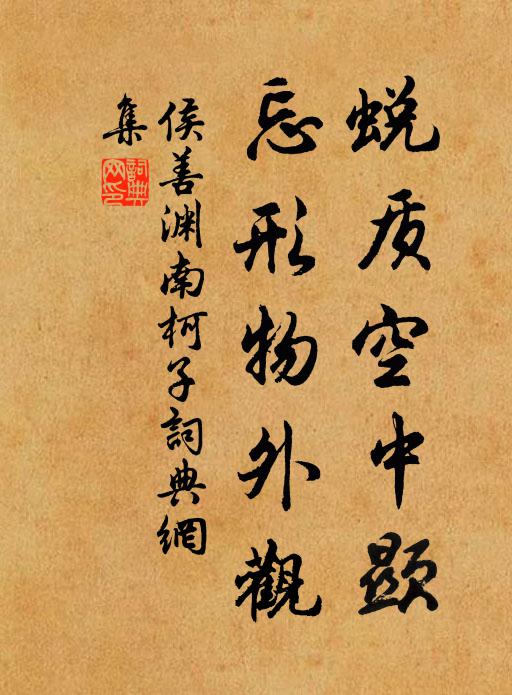 蜕质空中顯
忘形物外觀
侯善渊南柯子詞典網
集
詞典
网印